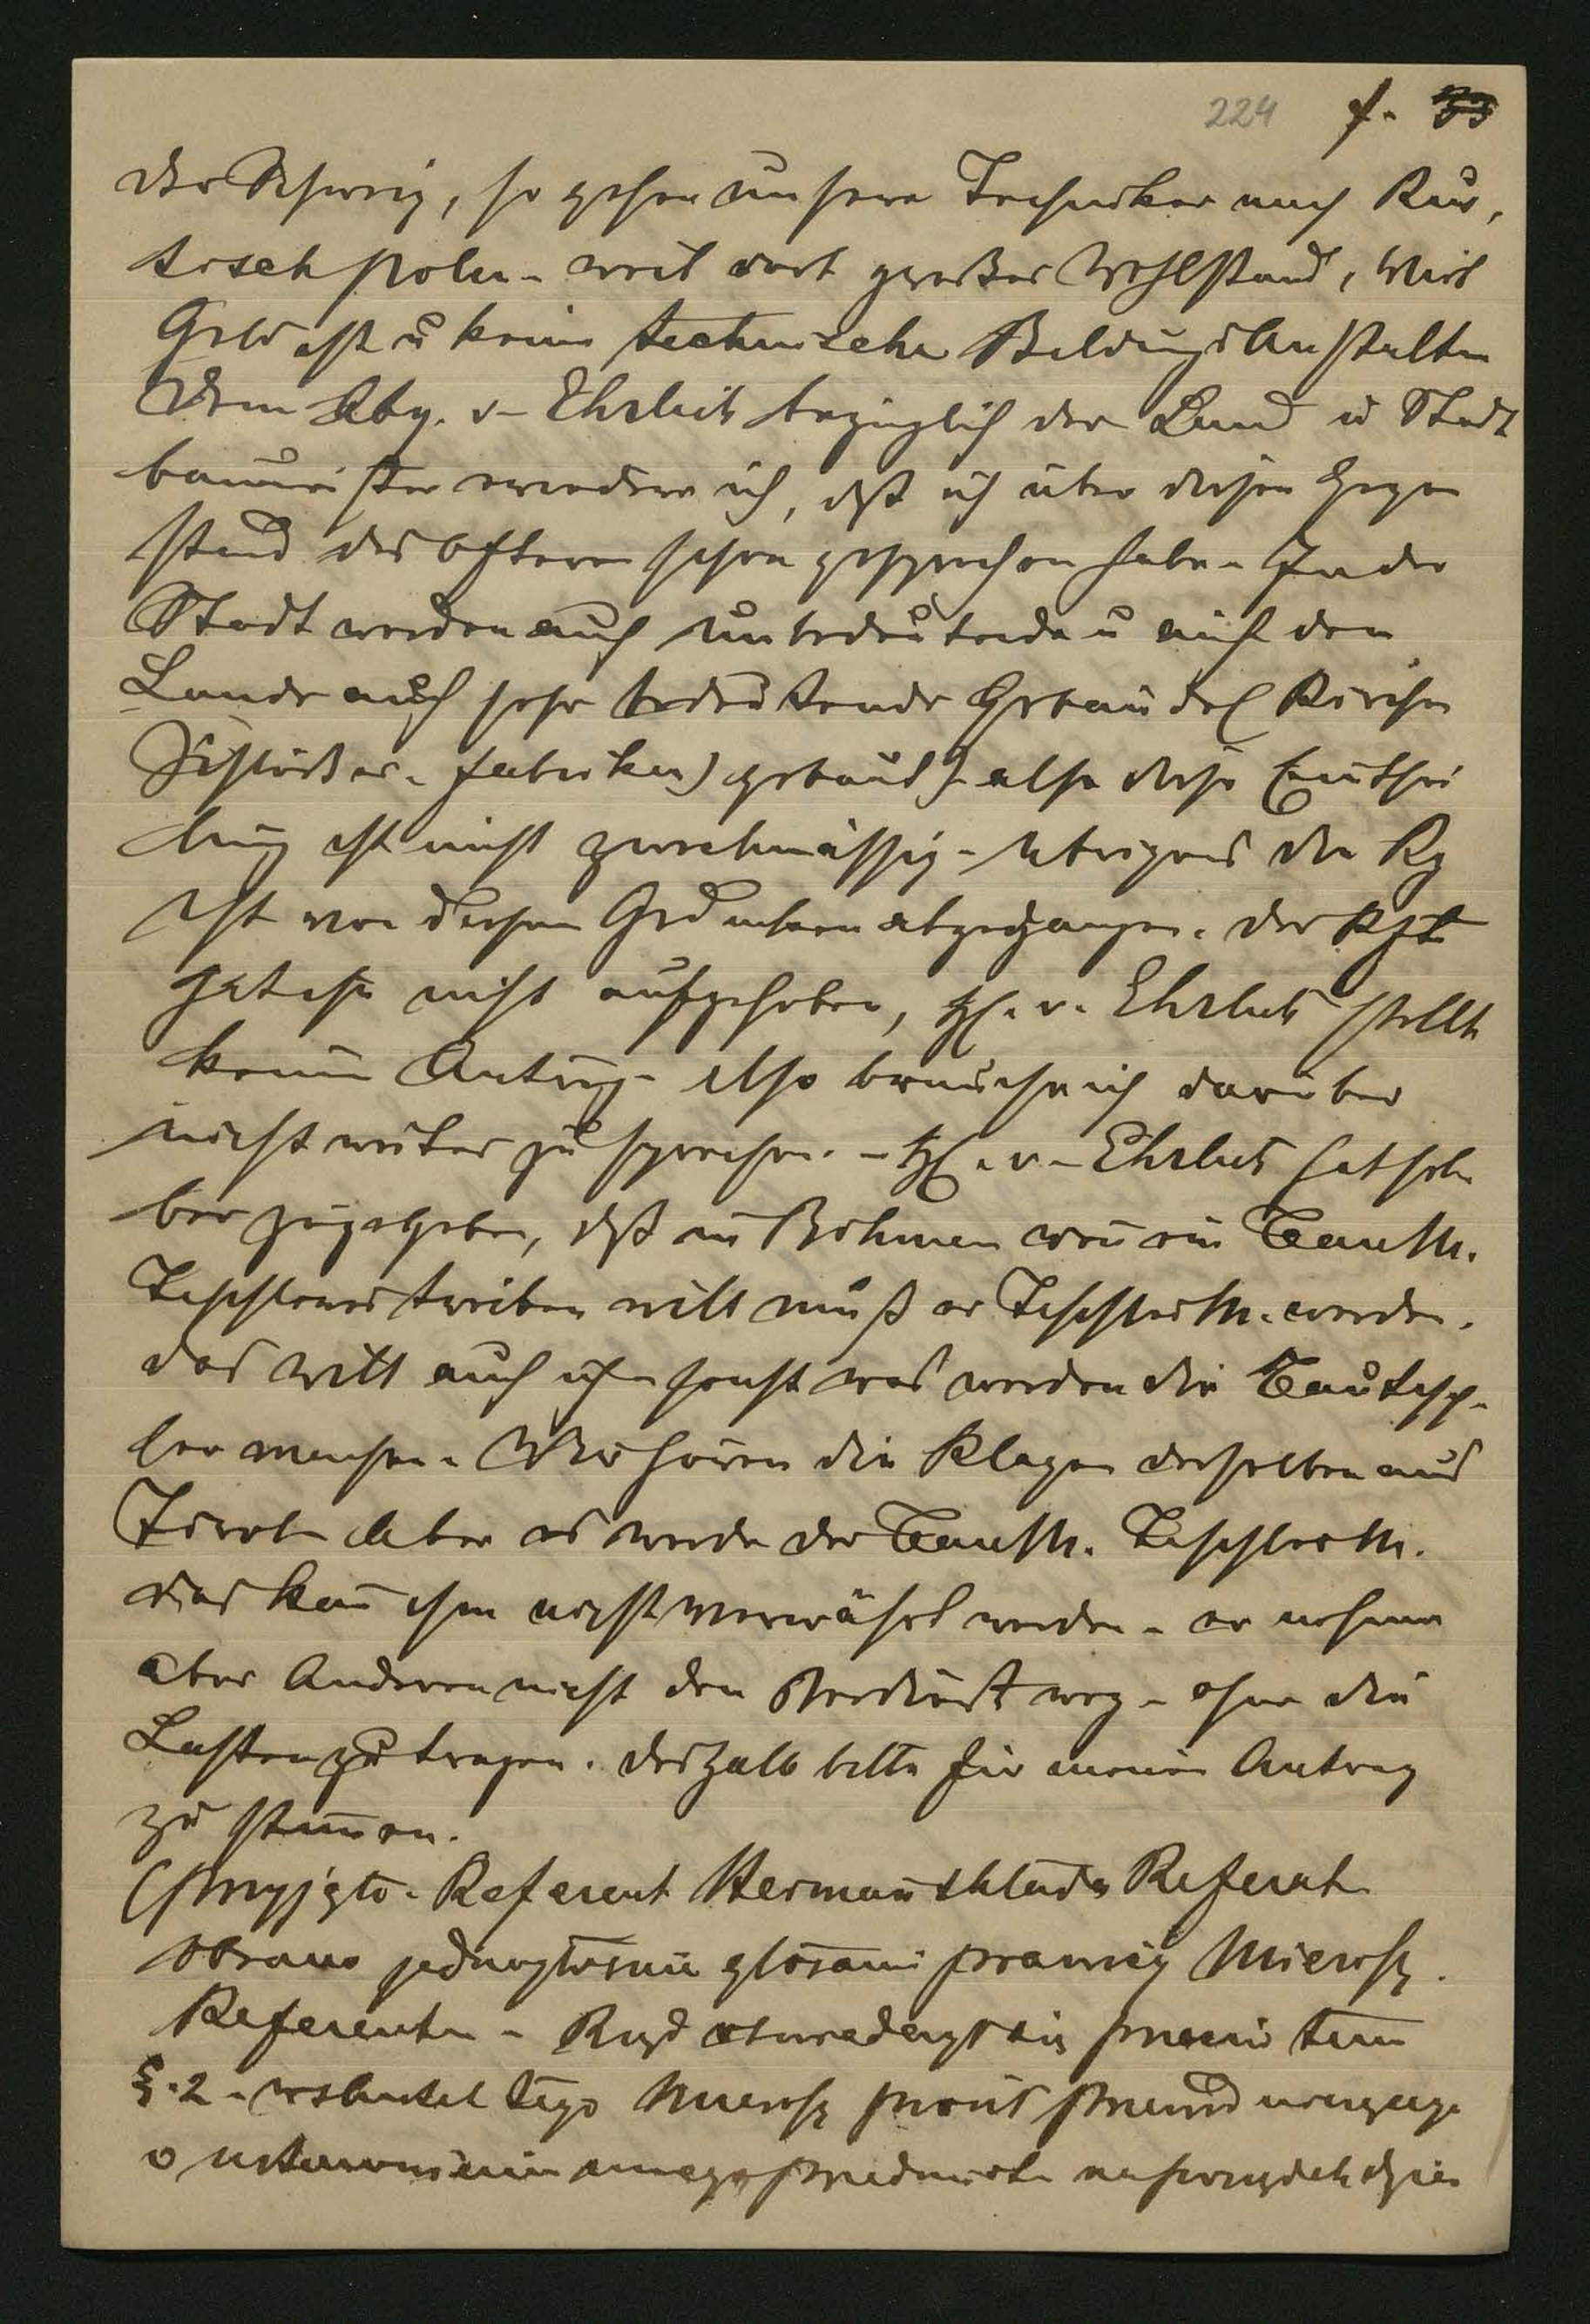 224 f. 33
der Schweiz, so gehen unsere Techniker nach Rus,
sischpolen - weil dort großer Wohlstand, viel
Geld ist u keine technische BildungsAnstalten
Dem Abg. v. Ehrlich bezüglich der Land u Stadt
baumeister erwiedere ich, daß ich über diesen Gegen
stand des öfteren schon gesprochen habe. In der
Stadt werden auch unbedeutende u auf dem
Lande auch sehr bedeutende Gebäude (Kirchen
Schlösser - Fabriken) gebaut - also diese Eintei
lung ist nicht zweckmässig - übrigens die Rg
ist von diesem Gedanken abgegangen. Der
hat es nicht aufgehoben, H. v. Ehrlich stellt
keinen Antrag - also brauche ich darüber
nicht weiter zu sprechen. - H. v. Ehrlich hat sel
ber zugegeben, daß in Böhmen wen ein Baum.
Tischlerei treiben will muß er Tischlerm. werden.
das will auch ich sonst was werden die Bautisch-
ler machen. Wir hören die Klagen derselben aus
Tirol. Aber es werde der Baum. Tischlerm.
das kan ihm nicht verwährt werden - er nehme
aber Anderen nicht den Verdienst weg - ohne die
Lasten zu tragen. deshalb bitte für meinen Antrag
zu stimen.
(przyjęto. Referent Referat
obrano jednogłośnie głosami prawicy mierosz.
Referentem - Rząd przeciw tem
§. 2 - wskutek tego mniejsz
o ustanowienie przedmiot